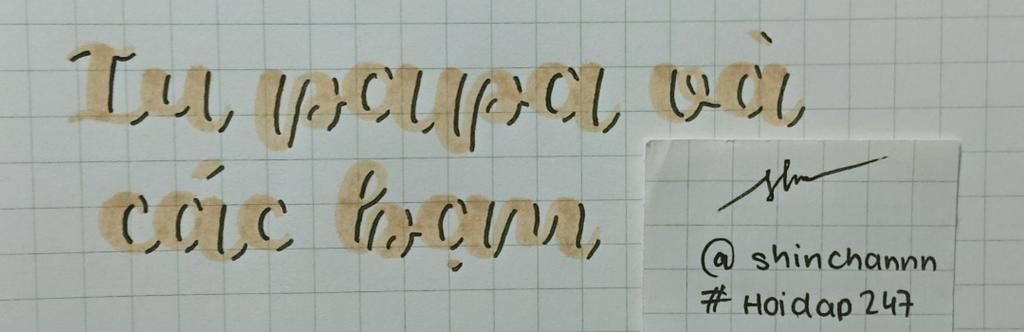 Iu paupa và
các bạn
@ shinchannn
# Hoidap 247